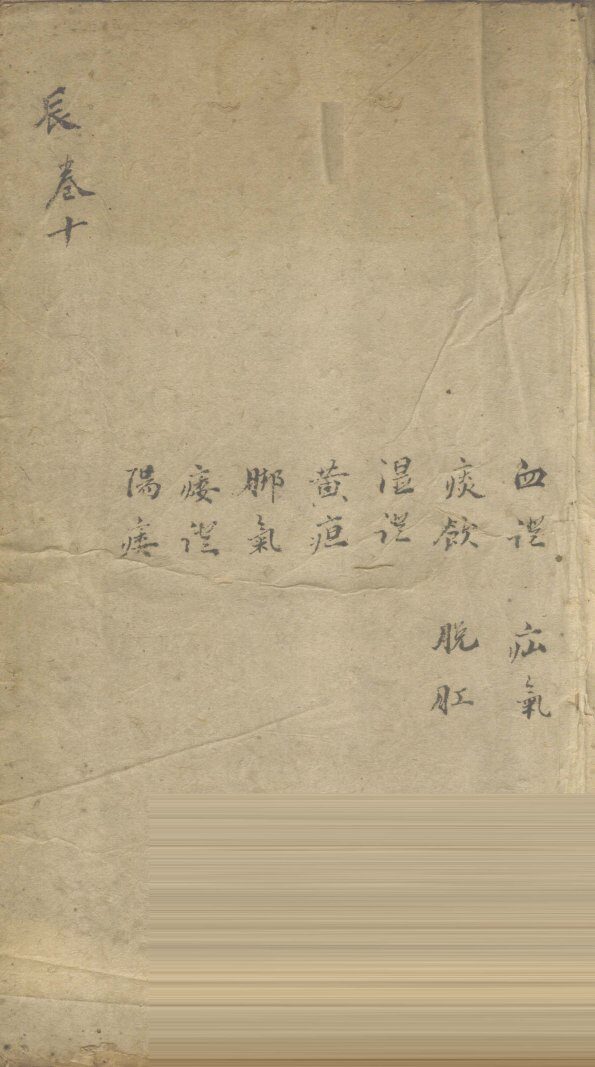 辰卷十
血證
痰飲
湿證
黃疸
脚氣
痿證
陽痿
疝氣
脫肛